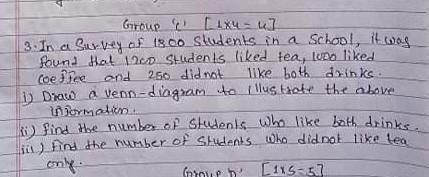 Group 'c' [1x4=4]
3. In a Survey of 1800 Students in a School, it was
found that 1200 Students liked tea, 1000 liked
Coeffee and 250 did not like both drinks.
i) Draw a venn-diagram to illustrate the above
information.
ii) find the number of Students who like both drinks.
iii) find the number of Students who didnot like tea
only.
Group D' [1x5=5]